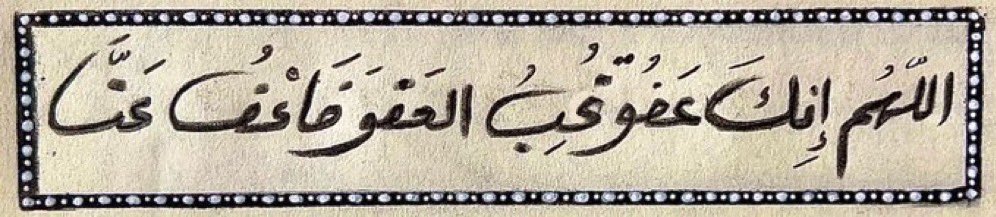 اللّهُم إنِكَ عَفُوّ تُحِبُ العَفوَ فَاعْفُ عَنَّا